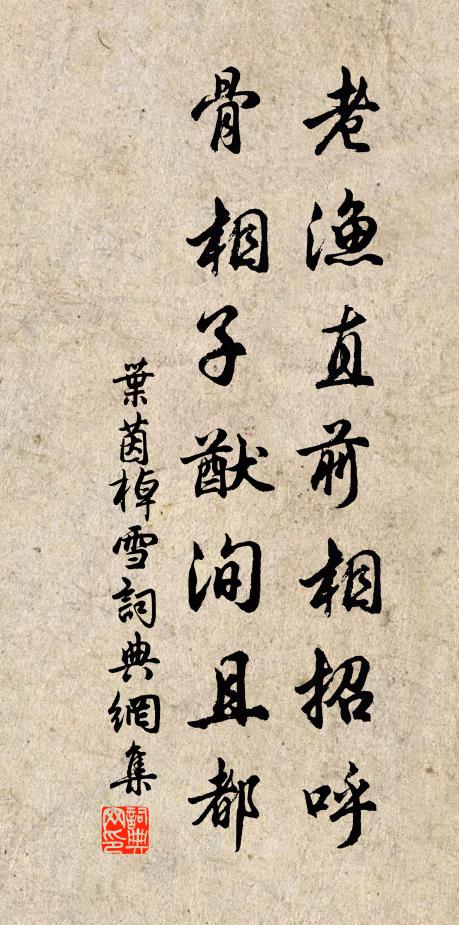 老漁直前相招呼
骨相子猷洵且都
葉茵棹雪詞典網集
詞典
网印